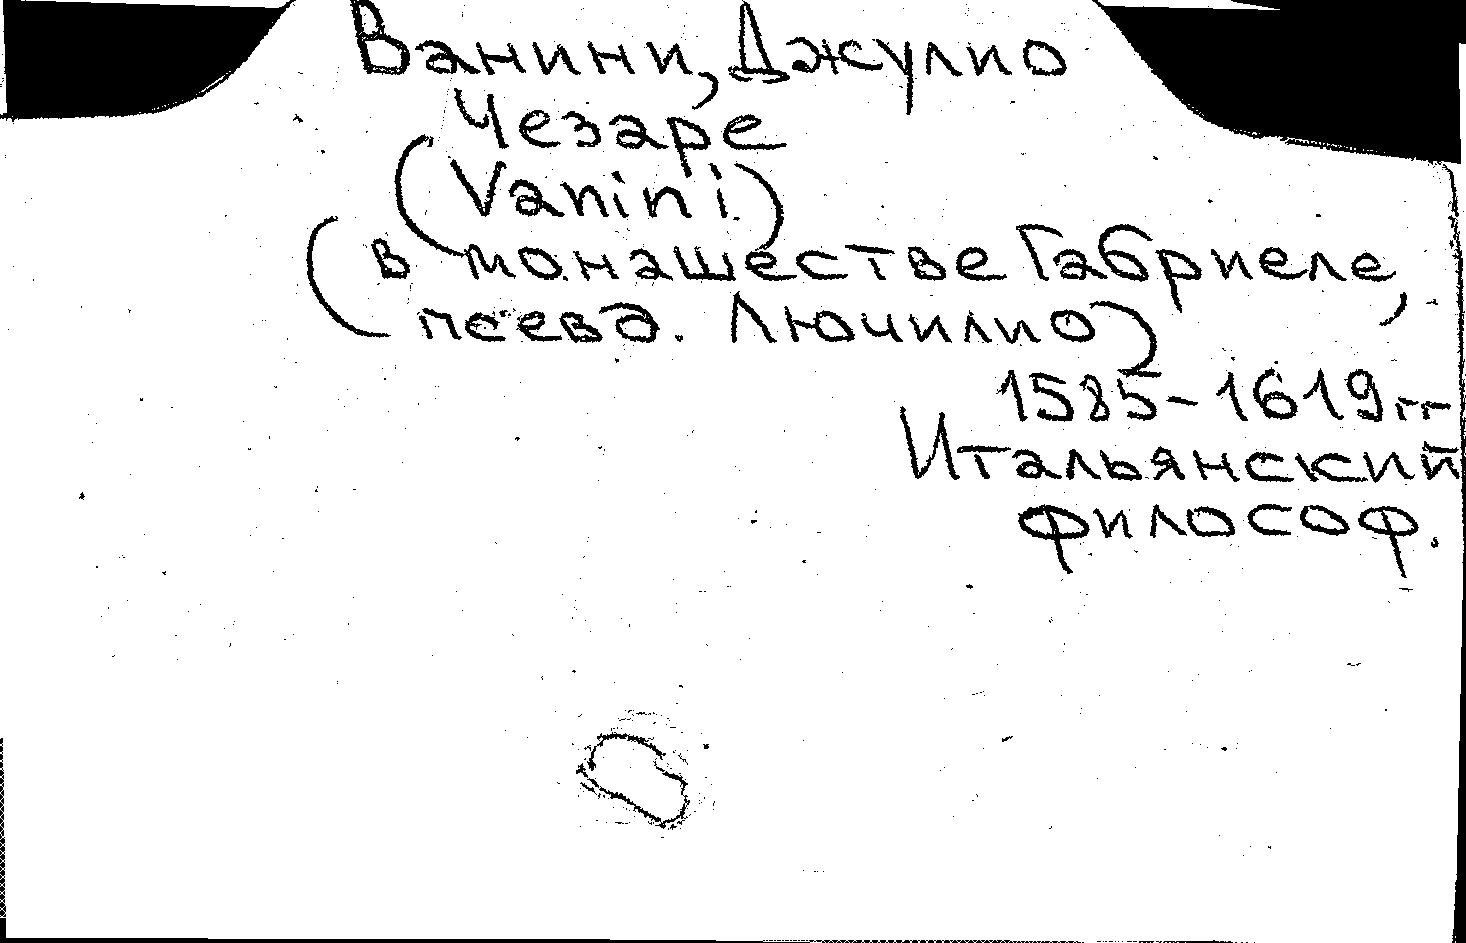 Ванини, Джулио
Чезаре
(Vanini)
(в монашестве Габриеле,
псевд. Лючилио)
1585-1619гг
Итальянский
философ.